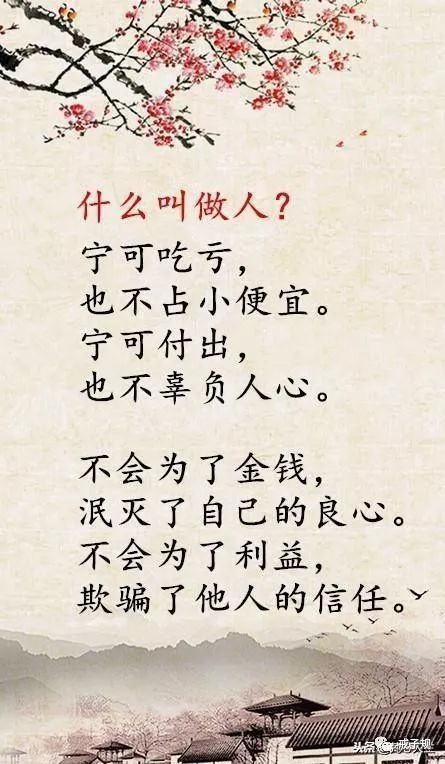 什么叫做人？
宁可吃亏，
也不占小便宜。
宁可付出，
也不辜负人心。
不会为了金钱，
泯灭了自己的良心。
不会为了利益，
欺骗了他人的信任。
头条
戒子规